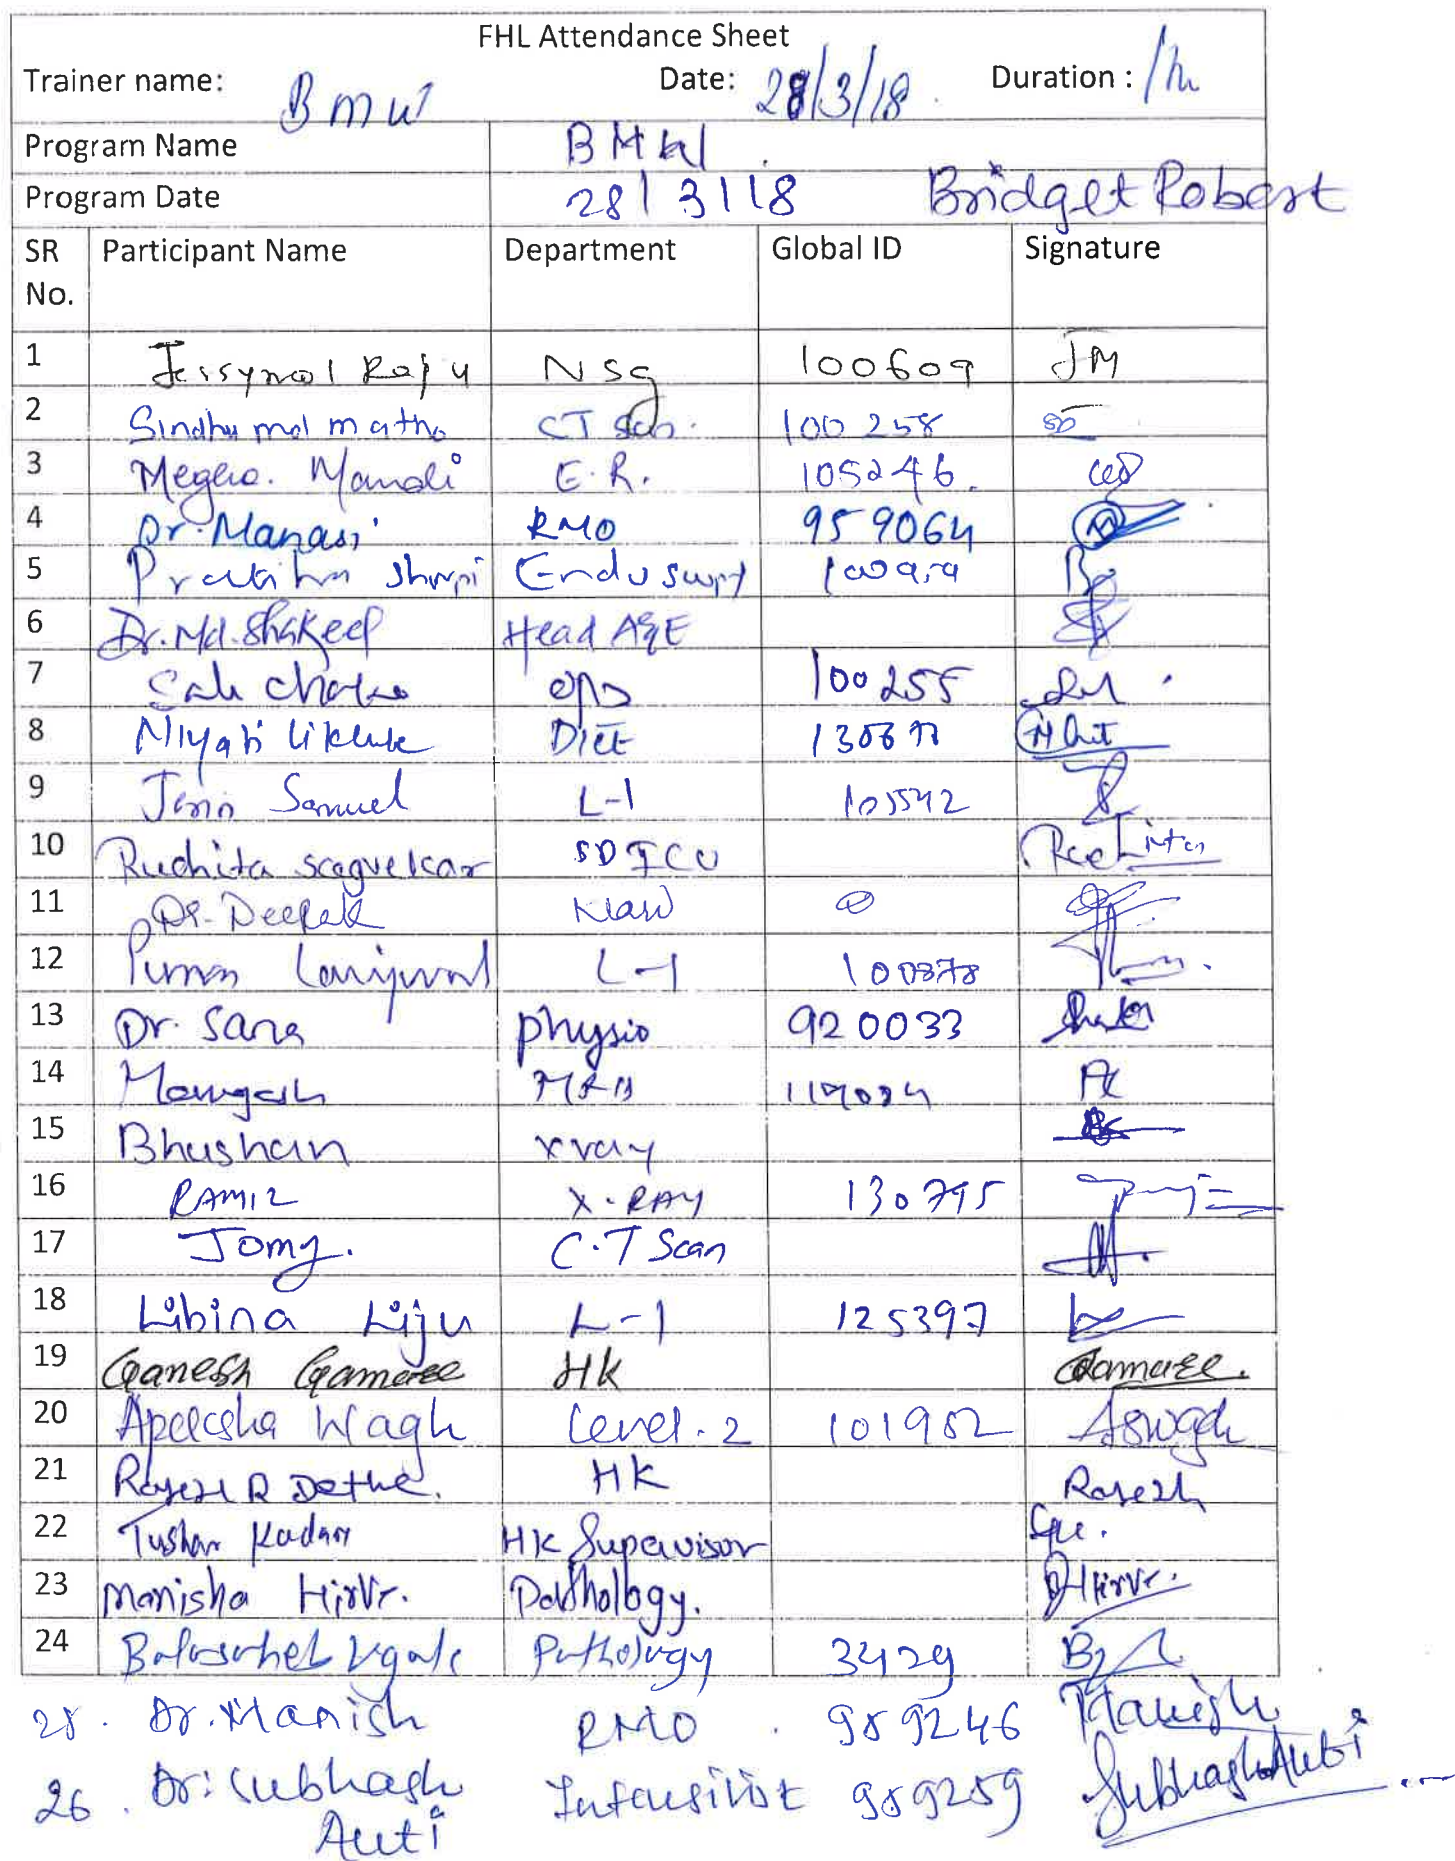 FHL Attendance Sheet
Trainer name: BMW Date: 28/3/18 Duration : 1hr
Program Name BMW
Program Date 28/3/18 Bridget Robert
SR No. Participant Name Department Global ID Signature
1 Jessymol Raju NSG 100609 JM
2 Sindhu mol CT Scan 100258
3 Megha. E.R. 105246
4 Dr. Manasi RMO 959064
5
6 Dr. Md. Shakeel Head A&E
7 100255
8 Niyati Diet
9 Jerin Samuel L-1
10 Ruchita SDICU
11 Dr. Deepak
12 L-1
13 Dr. Sana physio 920033
14 Mangesh MRD
15 Bhushan xray
16 RAMIZ X-RAY 130795
17 Jomy. C.T Scan
18 Libina Liju L-1 125397
19 Ganesh Gamare HK Gamare.
20 Wagh Level-2 101952
21 Rajesh R Dethe. HK Rajesh
22 Tushar Kadam HK Supervisor
23 Manisha Hirve. Pathology. Hirve.
24 Balasaheb Ugale Pathology 3429
25. Dr. Manish RMO 959246 Manish
26. Dr. Subhash Intensivist 959259 Subhash Auti
Auti